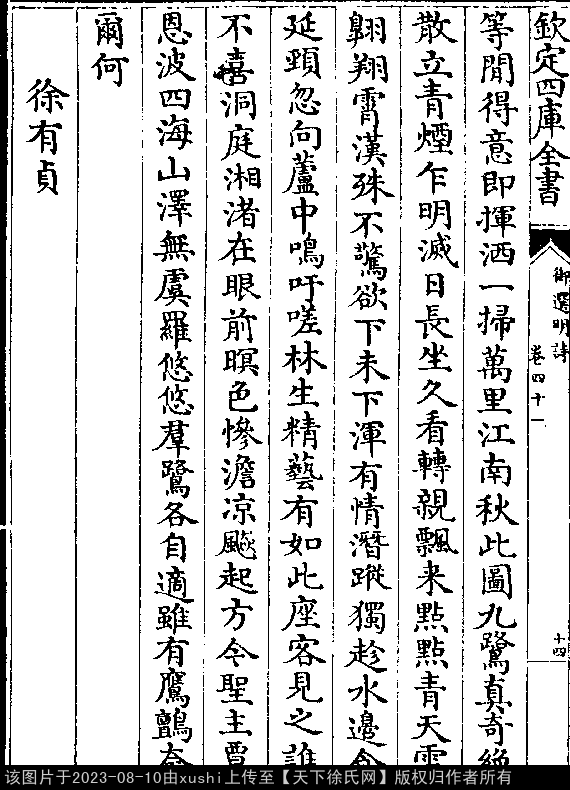 欽定四庫全書
御選明詩
卷四十一
十四
等閒得意即揮洒一掃萬里江南秋此圖九鷺真奇絶
散立青煙乍明滅日長坐久看轉親飄来點點青天雪
翱翔霄漢殊不驚欲下未下渾有情潛蹤獨趁水邊食
延頸忽向蘆中鳴吁嗟林生精藝有如此座客見之誰
不喜洞庭湘渚在眼前暝色慘澹凉飈起方今聖主覃
恩波四海山澤無虞羅悠悠羣鷺各自適雖有鷹鸇奈
爾何
徐有貞
该图片于2023-08-10由xushi上传至【天下徐氏网】版权归作者所有